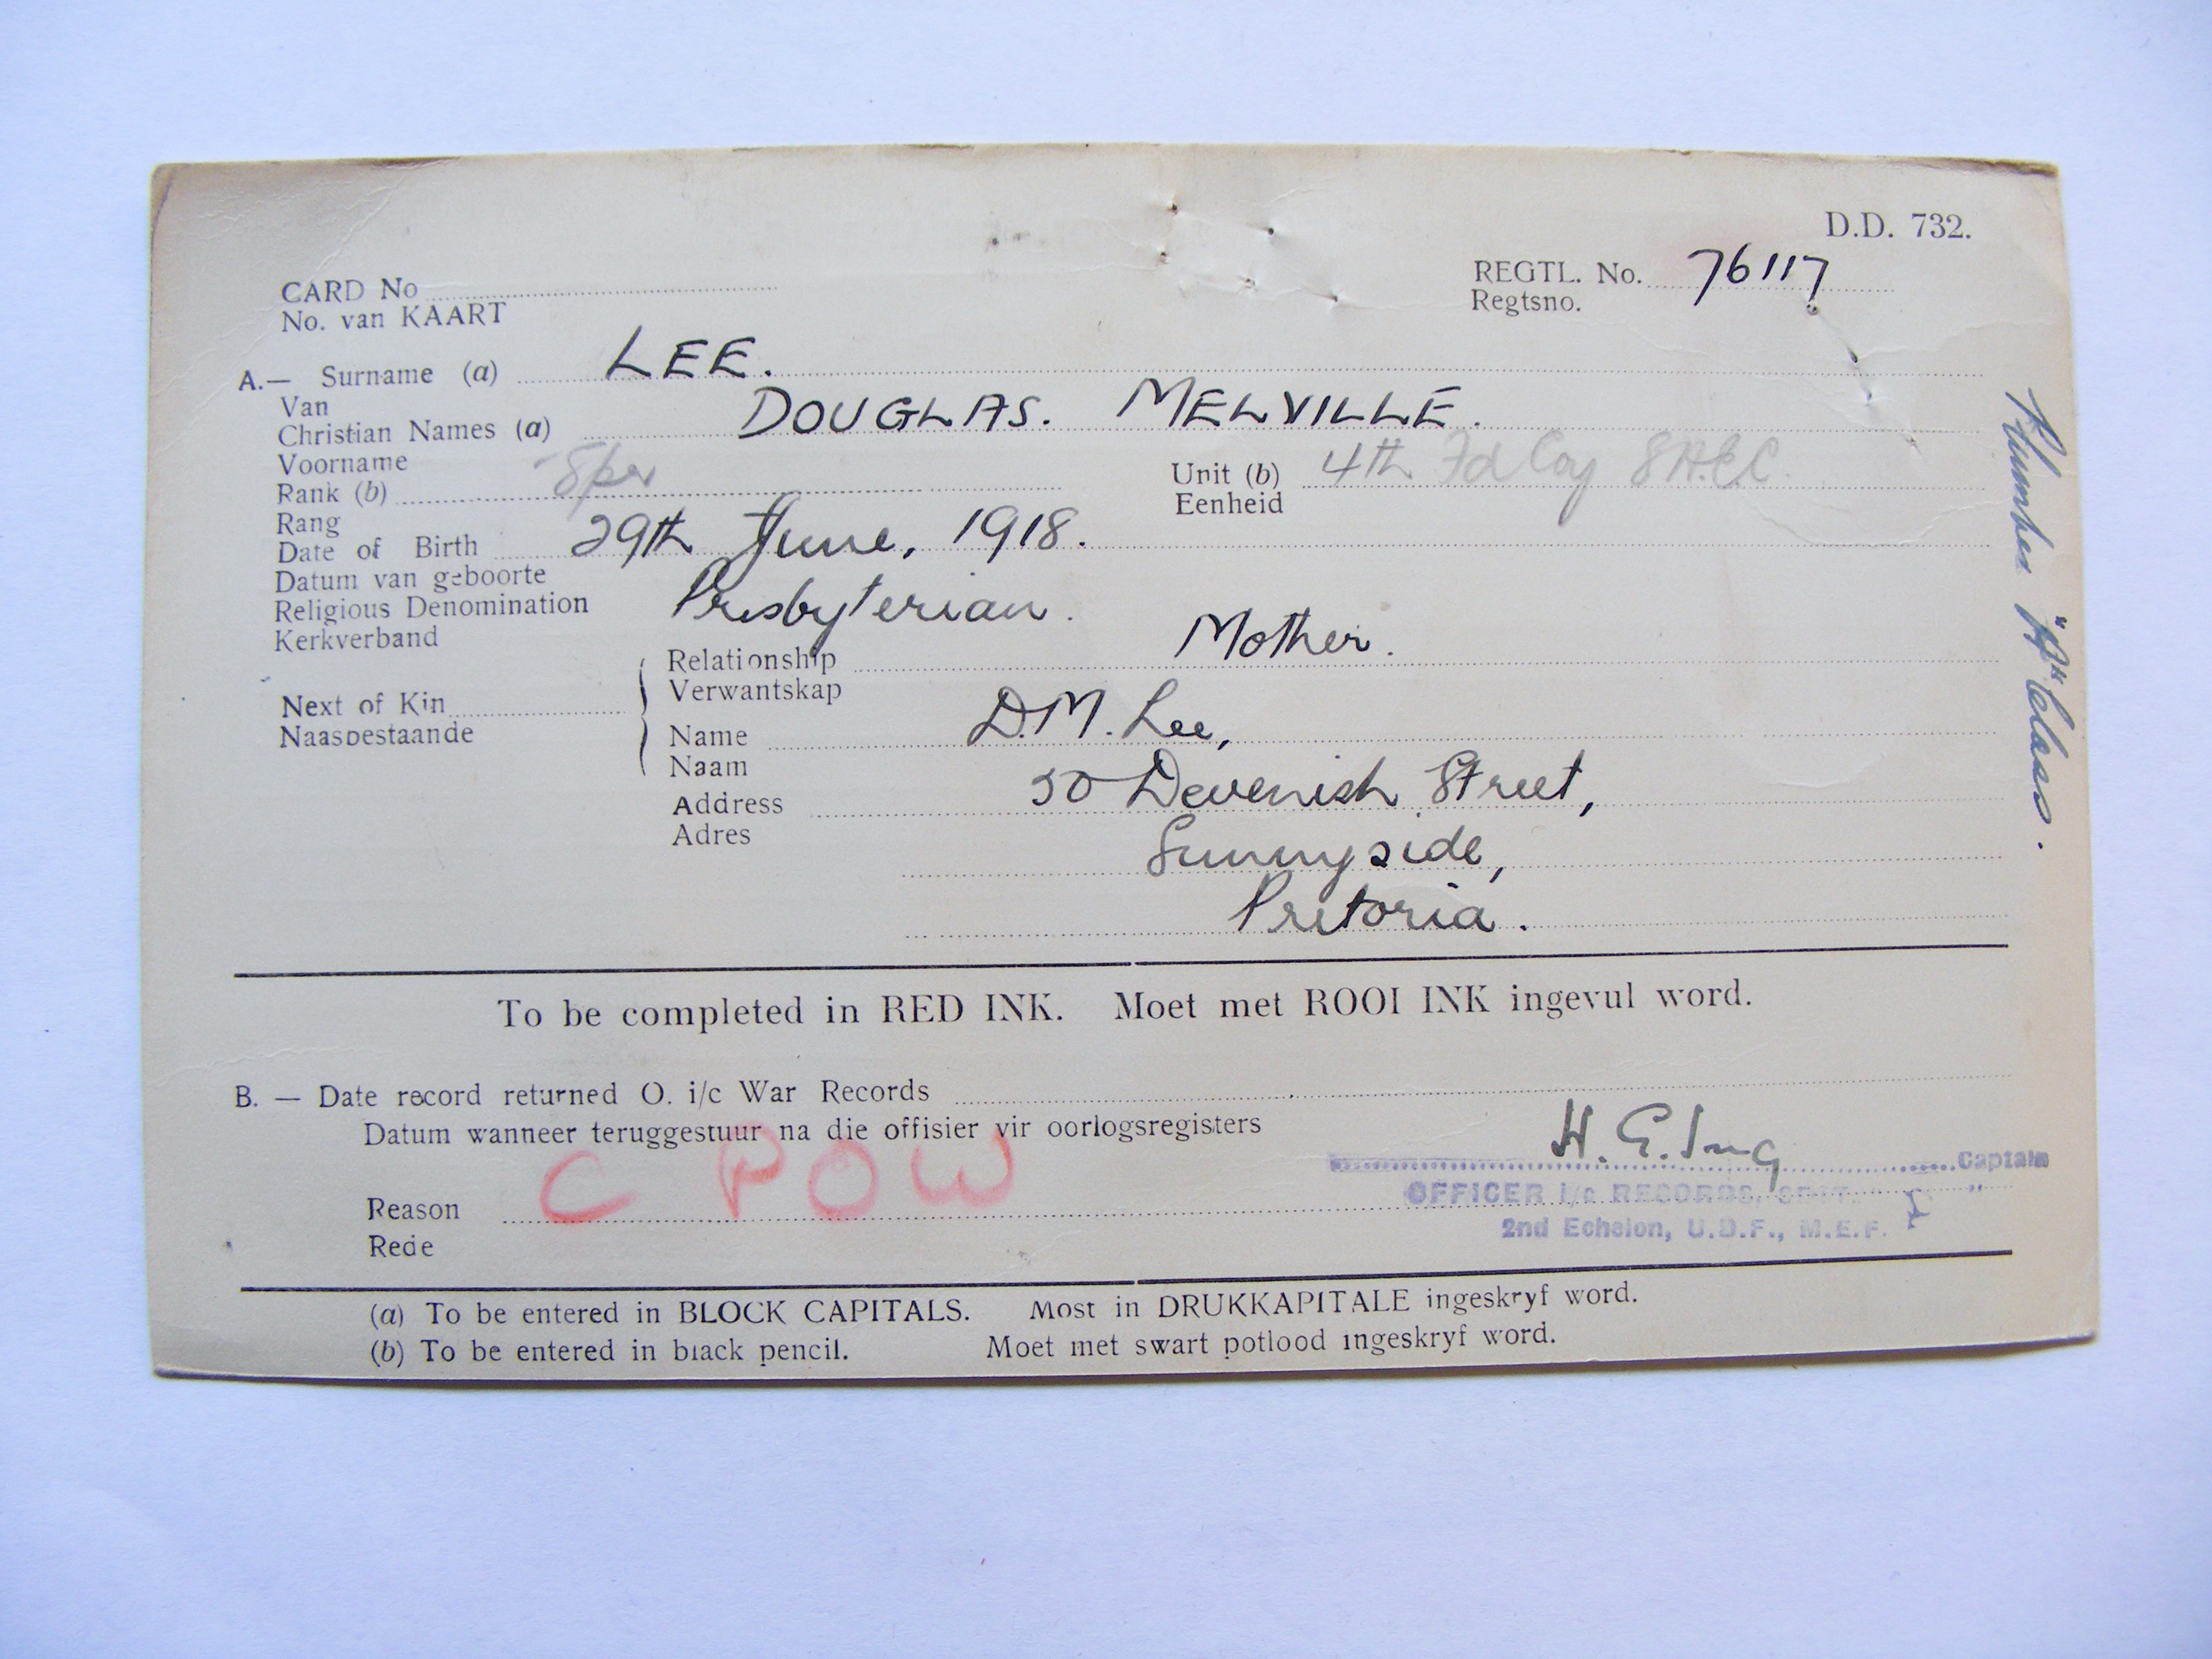 D.D. 732.
CARD No
No. van KAART
REGTL. No. 76117
Regtsno.
A.— Surname (a) LEE.
Van
Christian Names (a) DOUGLAS. MELVILLE.
Voorname
Rank (b) Spr
Unit (b) 4th Fd Coy S.A.E.C.
Rang
Eenheid
Date of Birth 29th June, 1918.
Datum van geboorte
Religious Denomination Presbyterian.
Kerkverband
Next of Kin
Naasbestaande
Relationship Mother.
Verwantskap
Name D.M. Lee,
Naam
Address 50 Devenish Street,
Adres
Sunnyside,
Pretoria.
Plumber "A" Class.
To be completed in RED INK. Moet met ROOI INK ingevul word.
B. — Date record returned O. i/c War Records
Datum wanneer teruggestuur na die offisier vir oorlogsregisters
C POW
H. E. Ing
Captain
Reason
Rede
OFFICER i/c RECORDS,
2nd Echelon, U.D.F., M.E.F.
(a) To be entered in BLOCK CAPITALS. Most in DRUKKAPITALE ingeskryf word.
(b) To be entered in black pencil. Moet met swart potlood ingeskryf word.